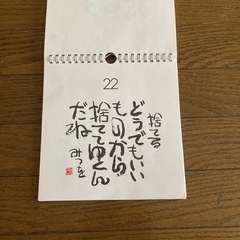 22
捨てる
どうでもいい
ものから
捨ててゆくん
だね
みつを